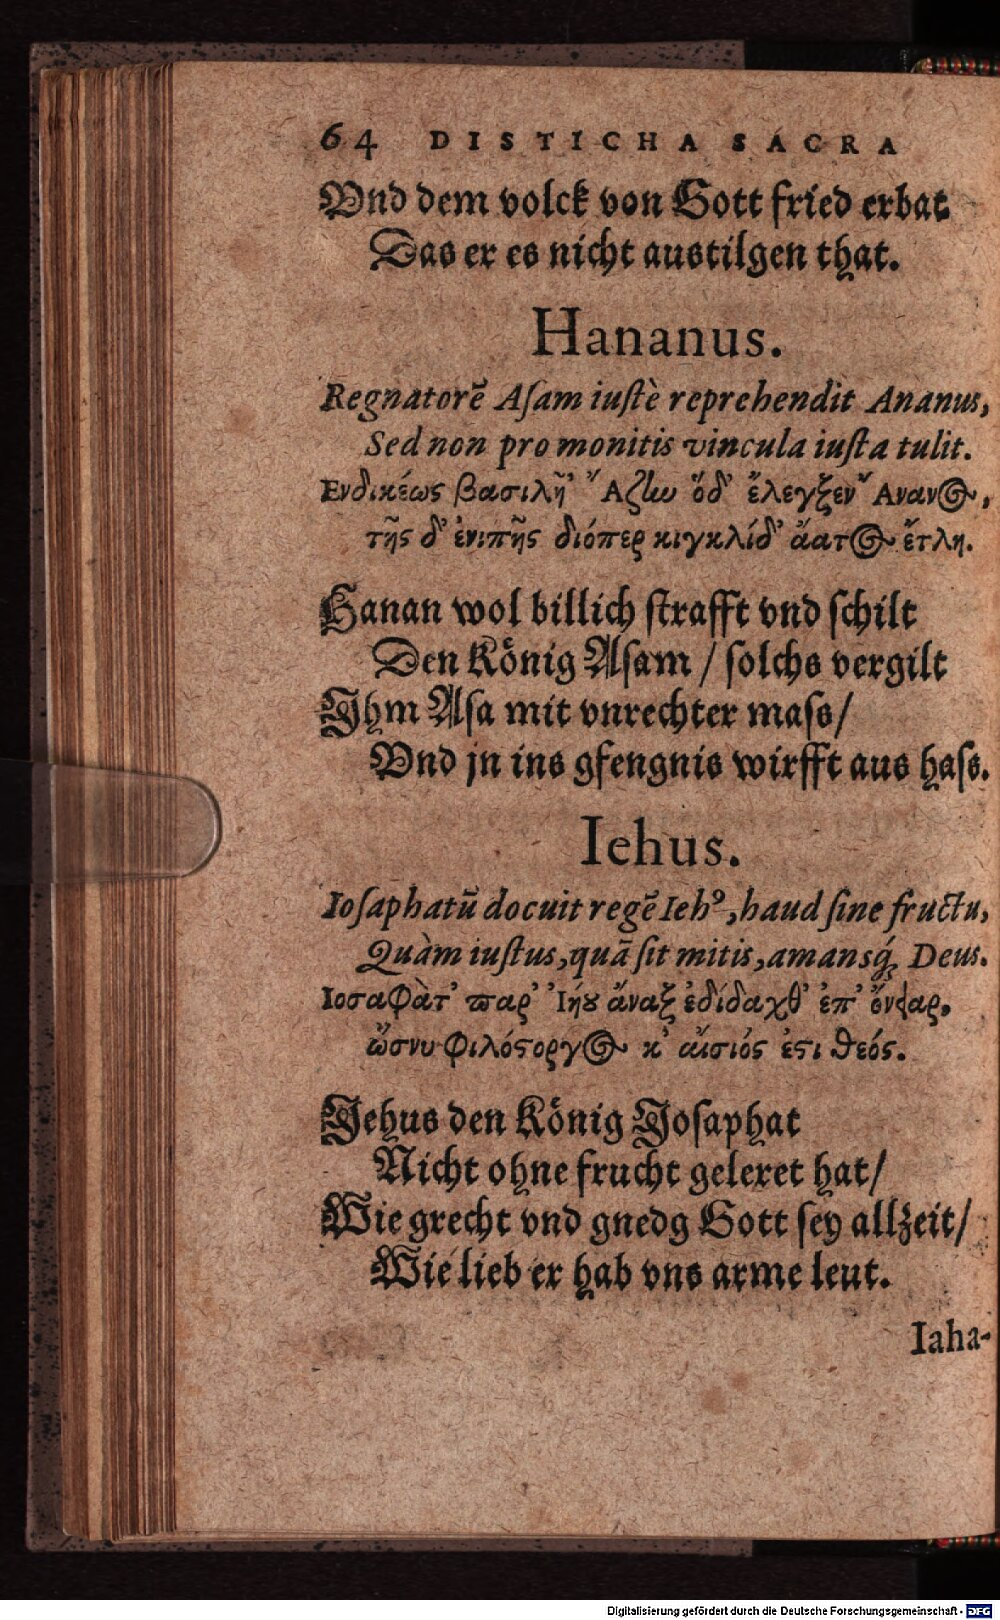 64 DISTICHA SACRA
Vnd dem volck von Gott fried erbat
Das er es nicht austilgen that.
Hananus.
Regnatorẽ Aſam iuſtè reprehendit Ananus,
Sed non pro monitis vincula iuſta tulit.
Ενδικέως βασιλῆ' Ἄζαν ὅδ' ἔλεγξεν Ἄνανος,
τῆς δ' ἐνιπῆς διόπερ κιγκλίδ' ἄατος ἔτλη.
Hanan wol billich ſtrafft vnd ſchilt
Den König Aſam / ſolchs vergilt
Ihm Aſa mit vnrechter maſs/
Vnd jn ins gfengnis wirfft aus haſs.
Iehus.
Ioſaphatũ docuit regẽ Iehꝰ, haud ſine fructu,
Quàm iuſtus, quã ſit mitis, amansq́; Deus.
Ιοσαφὰτ' παρ' Ἰήου ἄναξ ἐδίδαχθ' ἐπ' ὄνφαρ,
ὥσνυ φιλόστοργος κ' αἴσιός ἐστι θεός.
Jehus den König Joſaphat
Nicht ohne frucht geleret hat/
Wie grecht vnd gnedg Gott ſey allzeit/
Wie lieb er hab vns arme leut.
Iaha-
Digitalisierung gefördert durch die Deutsche Forschungsgemeinschaft - DFG